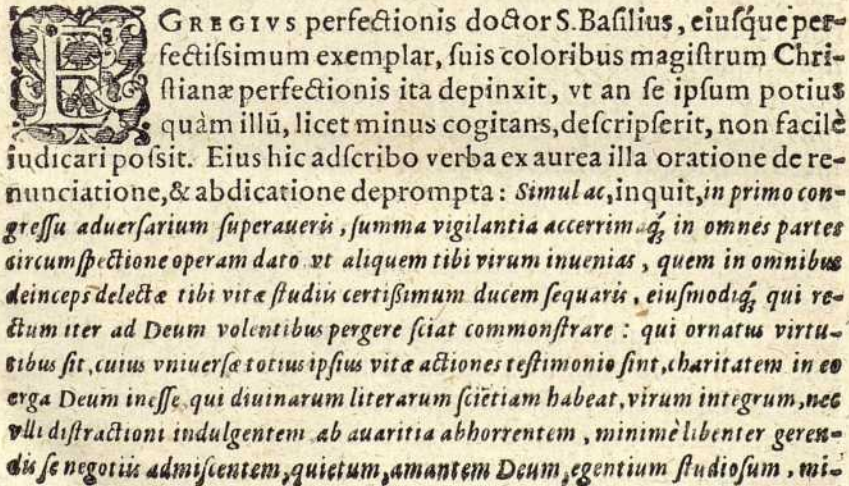 EGREGIVS perfectionis doctor S.Basilius, eiusq́ue per-
fectissimum exemplar, suis coloribus magistrum Chri-
stianæ perfectionis ita depinxit, vt an se ipsum potius
quàm illũ, licet minus cogitans, descripserit, non facilè
iudicari possit. Eius hic adscribo verba ex aurea illa oratione de re-
nunciatione, & abdicatione deprompta: Simul ac, inquit, in primo con-
gressu aduersarium superaueris, summa vigilantia accerrimaq́ꝫ in omnes partes
circumspectione operam dato vt aliquem tibi virum inuenias, quem in omnibus
deinceps delectæ tibi vitæ studiis certissimum ducem sequaris, eiusmodiq́ꝫ qui re-
ctum iter ad Deum volentibus pergere sciat commonstrare: qui ornatus virtu-
tibus sit, cuius vniuersæ totius ipsius vitæ actiones testimonio sint, charitatem in eo
erga Deum inesse, qui diuinarum literarum sciẽtiam habeat, virum integrum, nec
vlli distractioni indulgentem ab auaritia abhorrentem, minimè libenter geren-
dis se negotiis admiscentem, quietum, amantem Deum, egentium studiosum, mi-